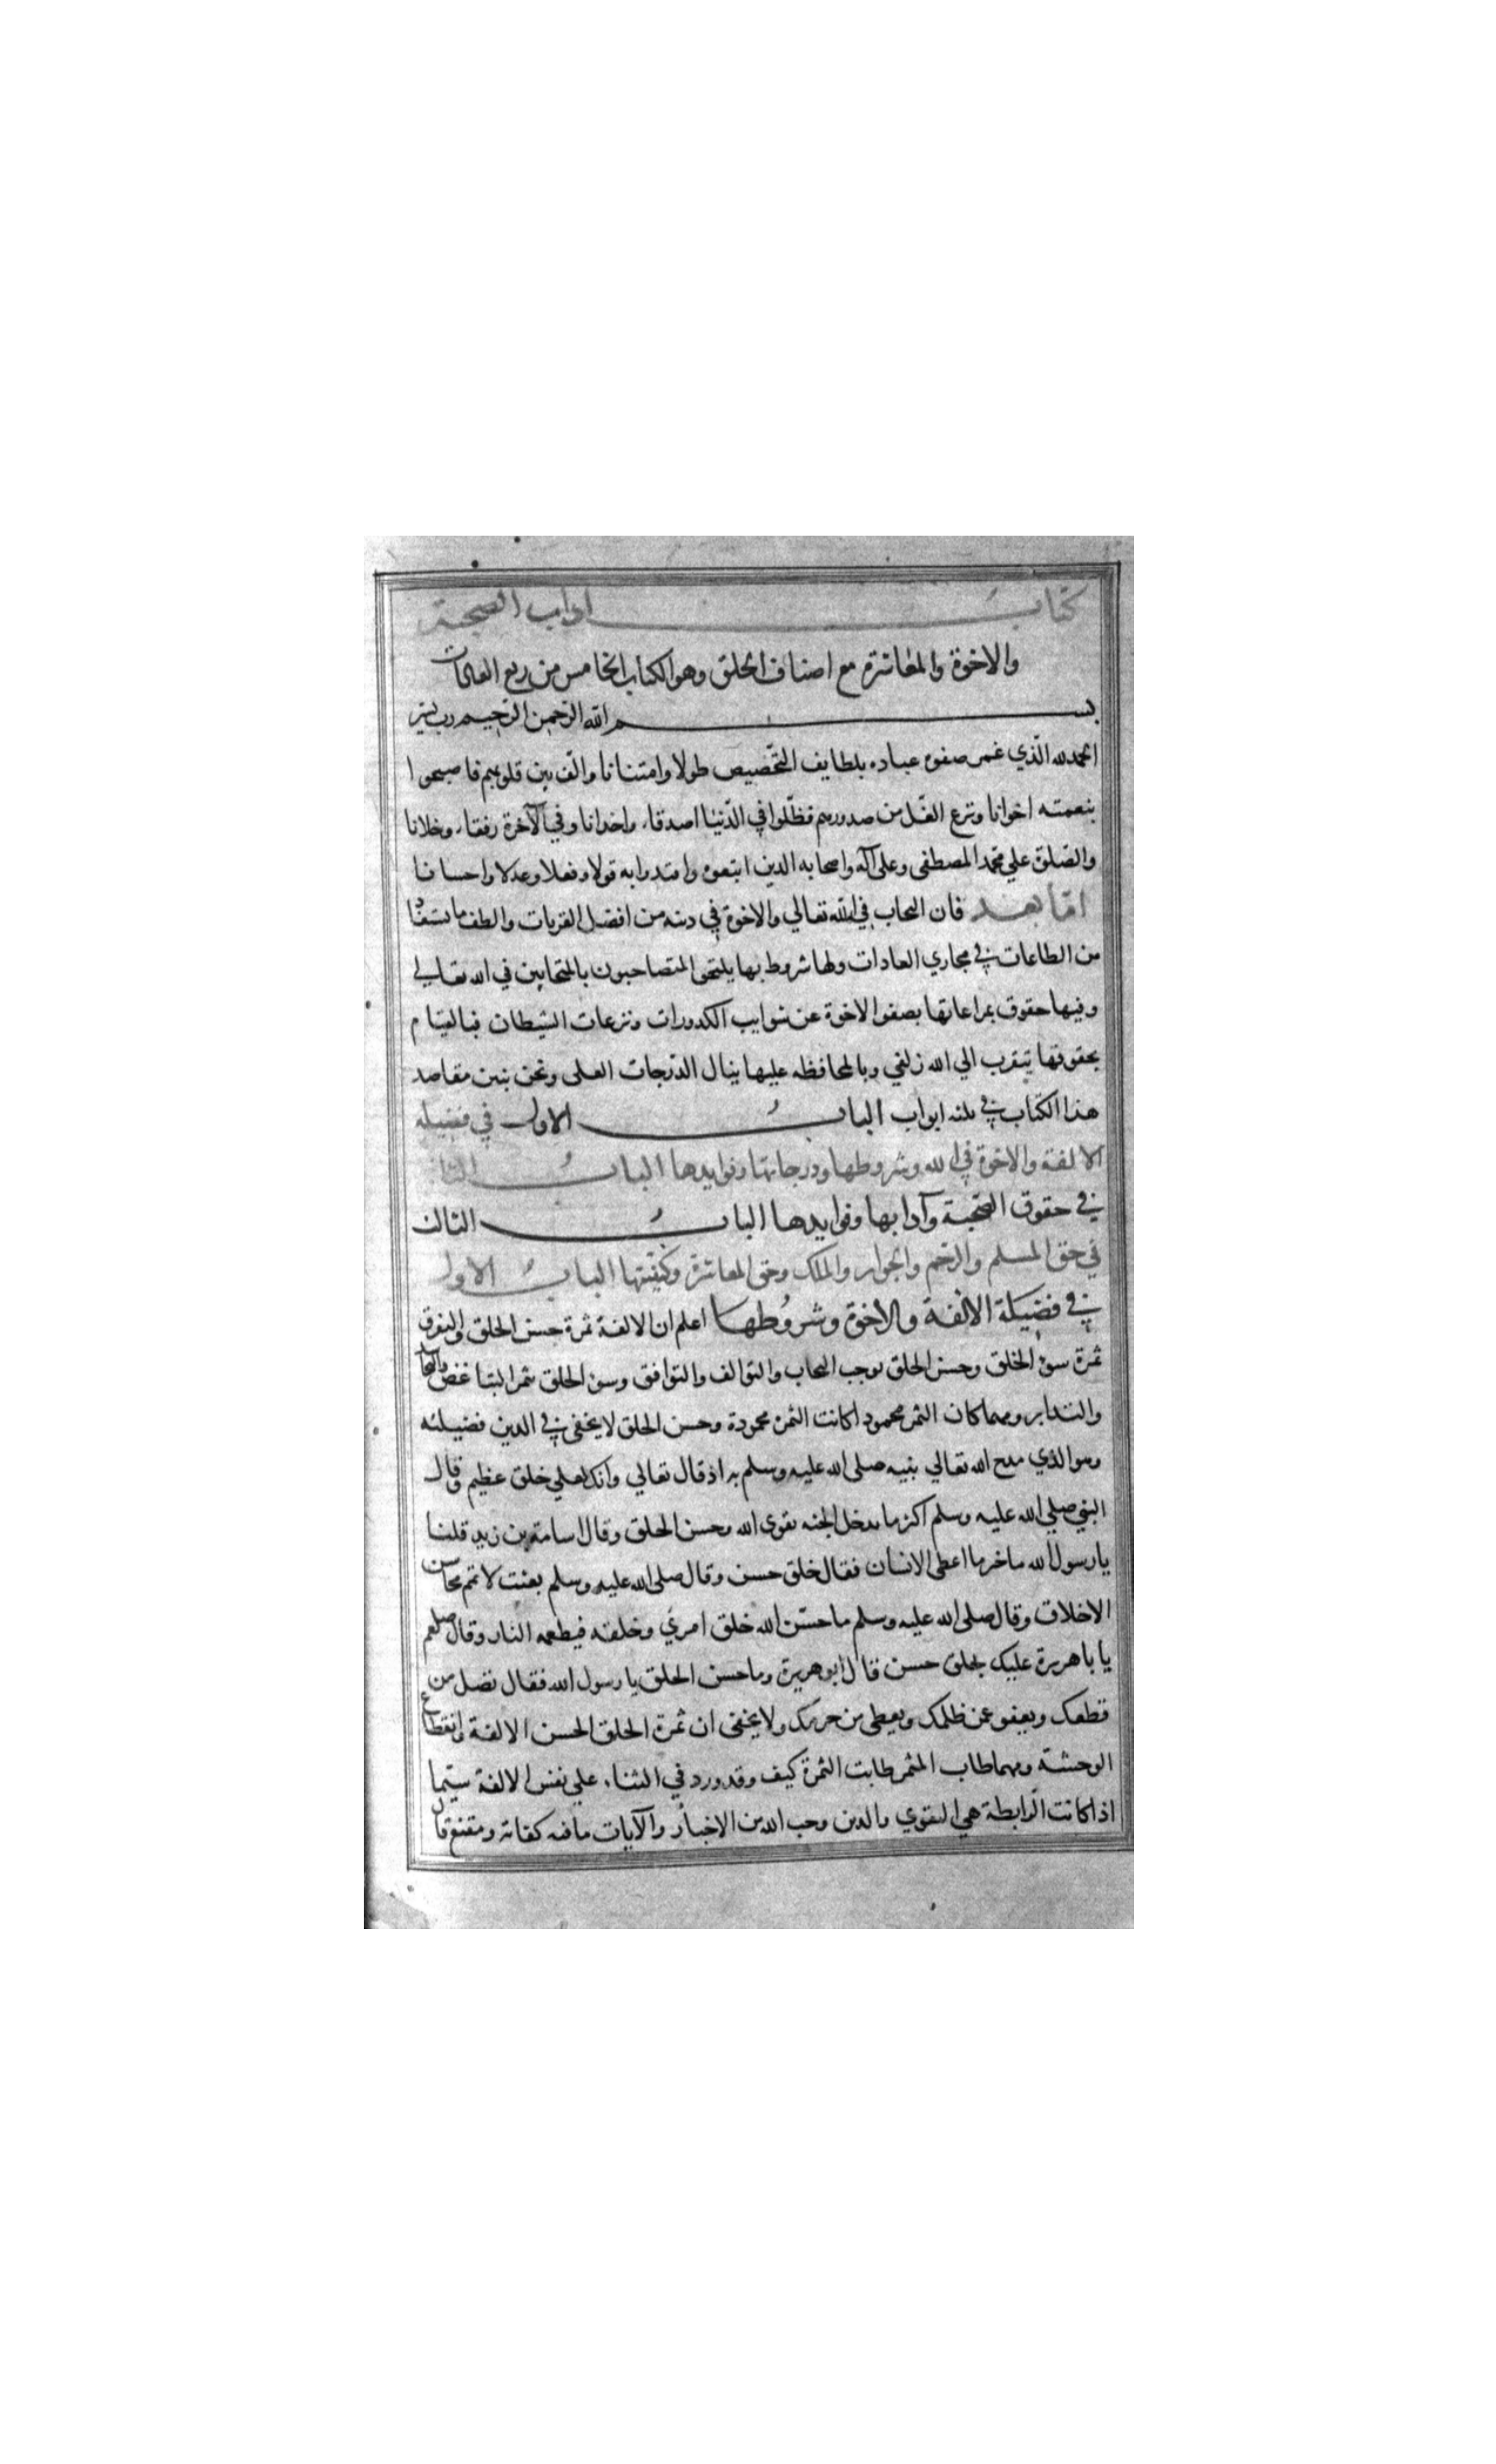 كتاب اداب الصحبة
والاخوة والمعاشرة مع اصناف الخلق وهو الكتاب الخامس من ربع العادات
بسم الله الرحمن الرحيم رب يسر
الحمد لله الذي غمر صفوه عباده بلطايف التخصيص طولا وامتنانا والف بين قلوبهم فاصبحوا
بنعمته اخوانا ونزع الغل من صدورهم فظلوا في الدنيا اصدقاء واخدانا وفي الآخرة رفقاء وخلانا
والصلوة علي محمد المصطفى وعلى آله واصحابه الذين اتبعوه واقتدوا به قولا وفعلا وعدلا واحسانا
اما بعد فان التحاب في الله تعالي والاخوة في دينه من افضل القربات والطف ما يستفاد
من الطاعات في مجاري العادات ولها شروط بها يلتحق المتصاحبون بالمتحابين في الله تعالي
وفيها حقوق بمراعاتها يصفو الاخوة عن شوايب الكدورات ونزعات الشيطان فبالقيام
بحقوقها يتقرب الي الله زلفي وبالمحافظه عليها ينال الدرجات العلى ونحن نبين مقاصد
هذا الكتاب في ثلثه ابواب الباب الاول في فضيله
الالفة والاخوة في الله وشروطها ودرجاتها وفوايدها الباب الثاني
في حقوق الصحبة وآدابها وفوايدها الباب الثالث
في حق المسلم والرحم والجوار والملك وحق المعاشرة وكيفيتها الباب الاول
في فضيلة الالفة والاخوة وشروطها اعلم ان الالفة ثمرة حسن الخلق والتفرق
ثمرة سوء الخلق وحسن الخلق يوجب التحاب والتوالف والتوافق وسوء الخلق يثمر التباغض والتحاسد
والتدابر ومهما كان المثمر محمودا كانت الثمرة محمودة وحسن الخلق لا يخفى في الدين فضيلته
وهو الذي مدح الله تعالي بنبيه صلى الله عليه وسلم به اذ قال تعالي وانك لعلي خلق عظيم وقال
النبي صلي الله عليه وسلم اكثر ما يدخل الجنه تقوى الله وحسن الخلق وقال اسامة بن زيد قلنا
يا رسول الله ما خير ما اعطى الانسان فقال خلق حسن وقال صلى الله عليه وسلم بعثت لاتمم محاسن
الاخلاق وقال صلى الله عليه وسلم ما حسن الله خلق امرئ وخلقه فيطعمه النار وقال صلعم
يا باهريرة عليك بحلق حسن قال ابوهريرة وما حسن الخلق يا رسول الله فقال تصل من
قطعك ويعفو عمن ظلمك ويعطى من حرمك ولا يخفى ان ثمرة الخلق الحسن الالفة وانقطاع
الوحشة ومهما طاب المثمر طابت الثمرة كيف وقد ورد في الثناء علي نفس الالفة سيما
اذا كانت الرابطة هي التقوي والدين وحب الله من الاخبار والآيات ما فيه كفاية ومقنع قال